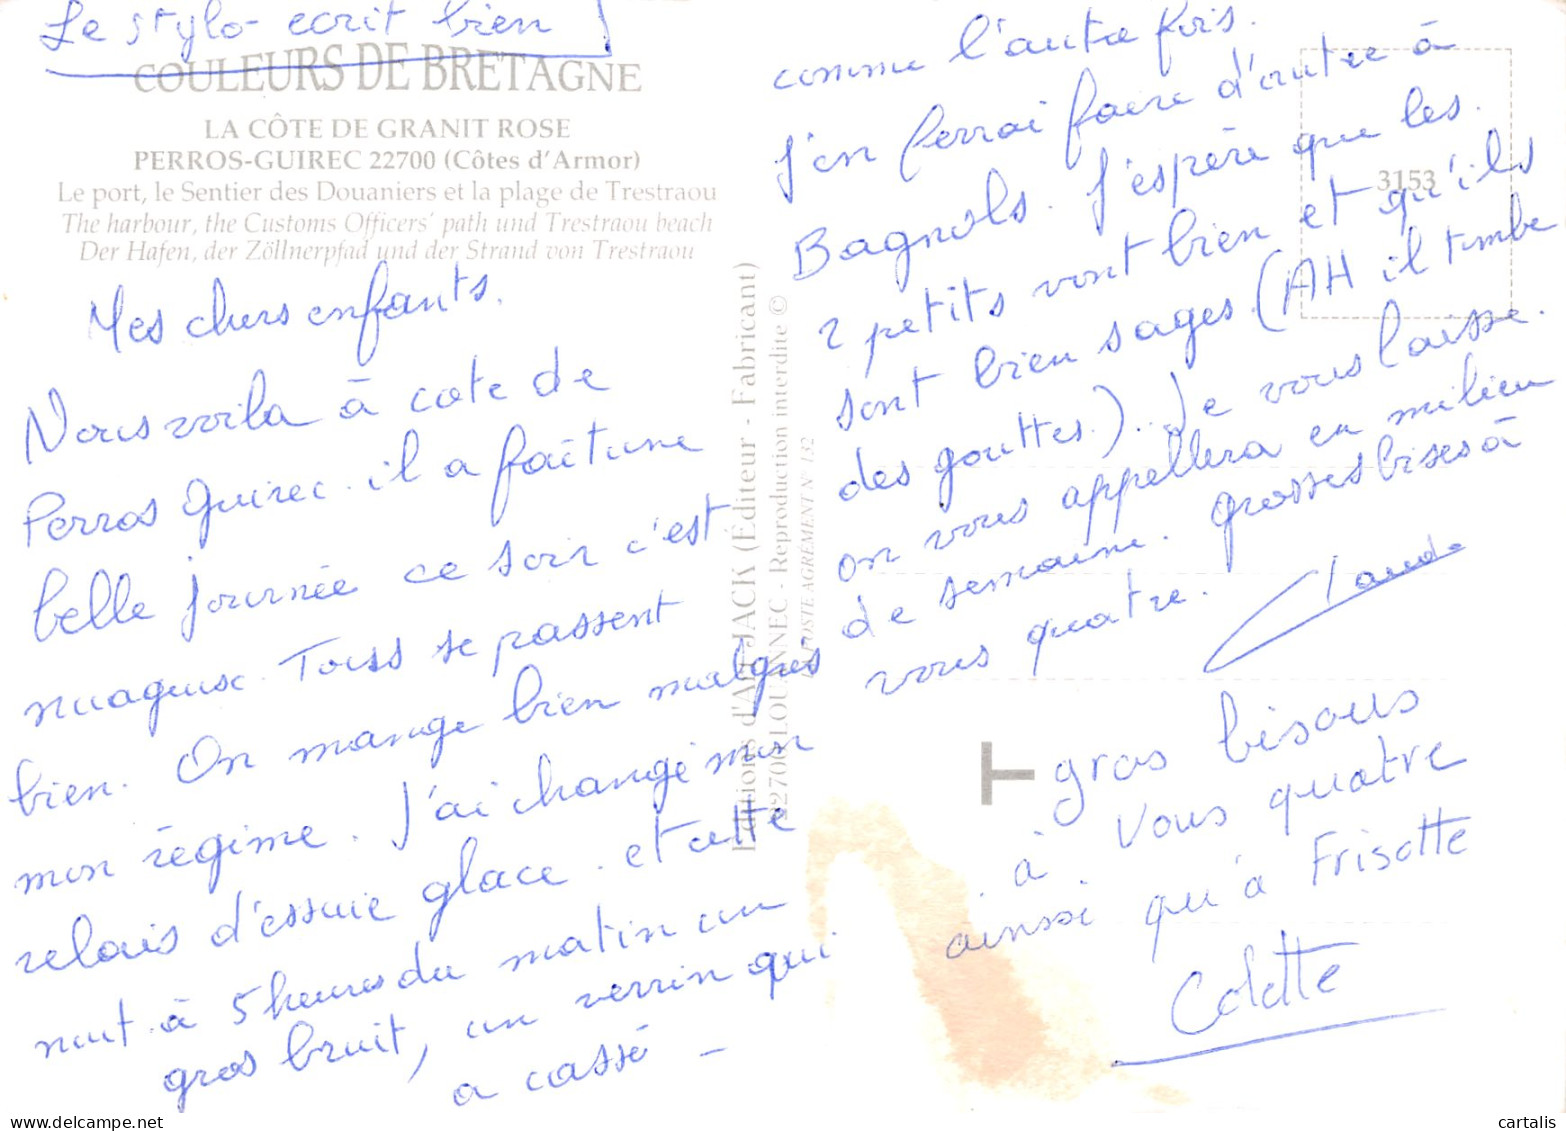 Le stylo ecrit bien !
COULEURS DE BRETAGNE
LA CÔTE DE GRANIT ROSE
PERROS-GUIREC 22700 (Côtes d'Armor)
Le port, le Sentier des Douaniers et la plage de Trestraou
The harbour, the Customs Officers' path und Trestraou beach
Der Hafen, der Zöllnerpfad und der Strand von Trestraou
Mes chers enfants.
Nous voila à cote de
Perros Guirec. il a fait une
belle journée ce soir c'est
nuageuse. Touss se passent
bien. On mange bien malgrés
mon régime. J'ai changé mon
relais d'essuie glace. et cette
nuit à 5 heures du matin un
gros bruit, un verrin qui
a cassé -
Editions d'Art JACK (Éditeur - Fabricant)
22700 LOUANNEC - Reproduction interdite ©
LA POSTE AGRÉMENT N° 132
3153
comme l'autre fois.
J'en ferrai faire d'autre à
Bagnols. J'espère que les.
2 petits vont bien et qu'ils
sont bien sages. (AH il tombe
des gouttes.)... Je vous laisse.
on vous appellera en milieu
de semaine. grosses bises à
vous quatre. Claude
T
gros bisous
à vous quatre
ainsi qu'à Frisotte
Colette
cartalis